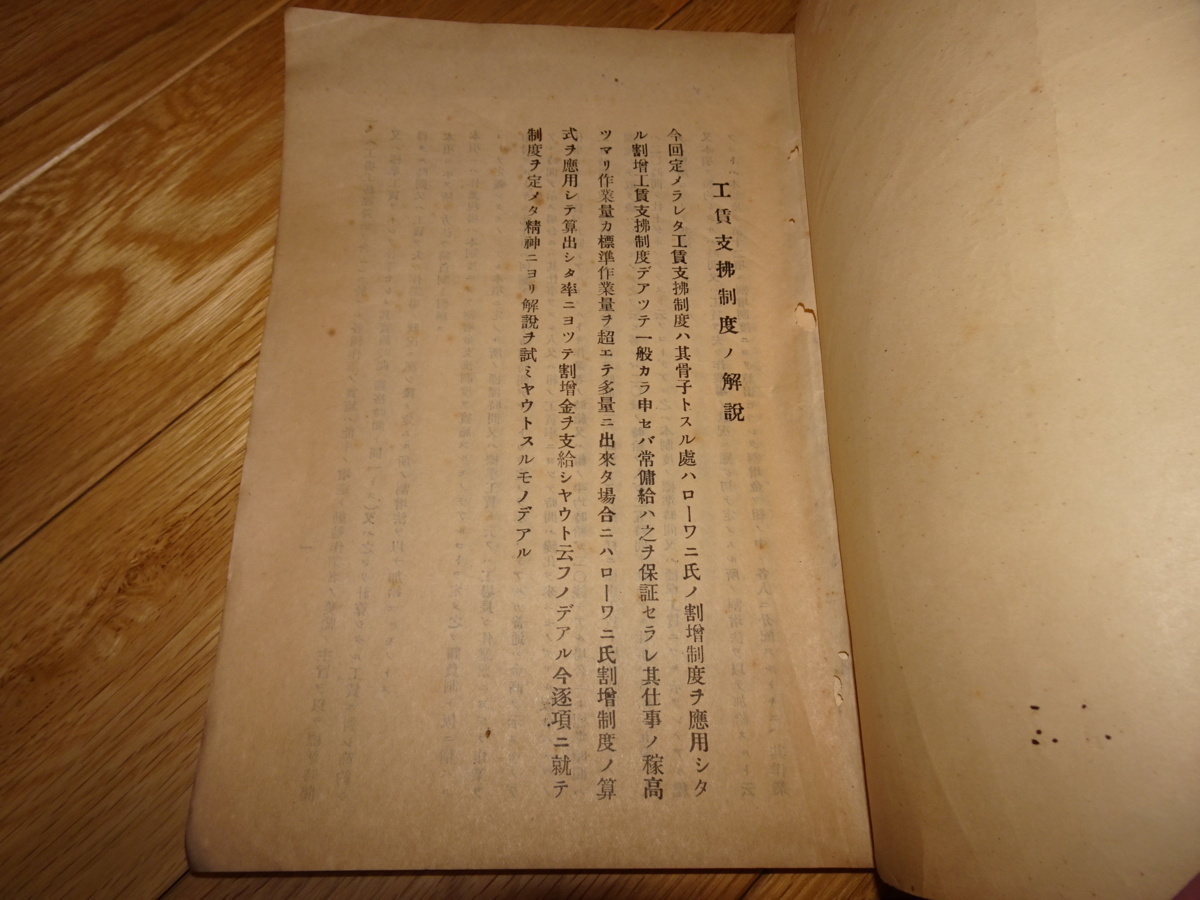 工賃支拂制度ノ解說
今回定メラレタ工賃支拂制度ハ其骨子トスル處ハローワニ氏ノ割增制度ヲ應用シタ
ル割增工賃支拂制度デアツテ一般カラ申セバ常傭給ハ之ヲ保証セラレ其仕事ノ稼高
ツマリ作業量カ標準作業量ヲ超エテ多量ニ出來タ場合ニハローワニ氏割增制度ノ算
式ヲ應用シテ算出シタ率ニヨツテ割增金ヲ支給シヤウト云フノデアル今逐項ニ就テ
制度ヲ定メタ精神ニヨリ解說ヲ試ミヤウトスルモノデアル